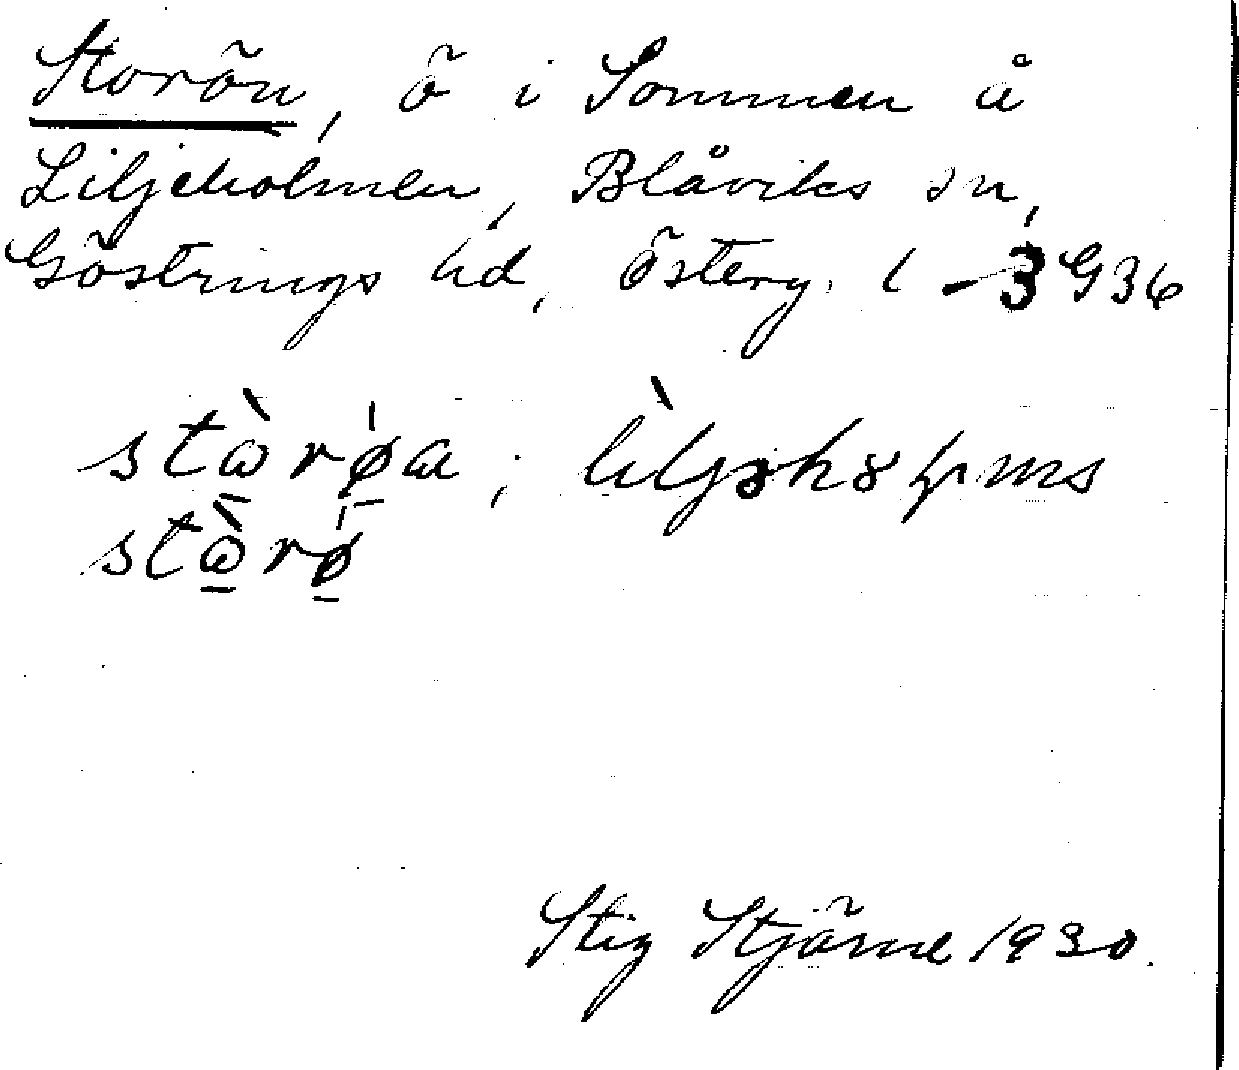 Storön, ö i Sommen å
Liljeholmen, Blåviks sn,
Göstrings hd, Österg. l 3 G 36
stὼrøa; lìljəhɤ
stὼrø
Stig Stjärne 1930.